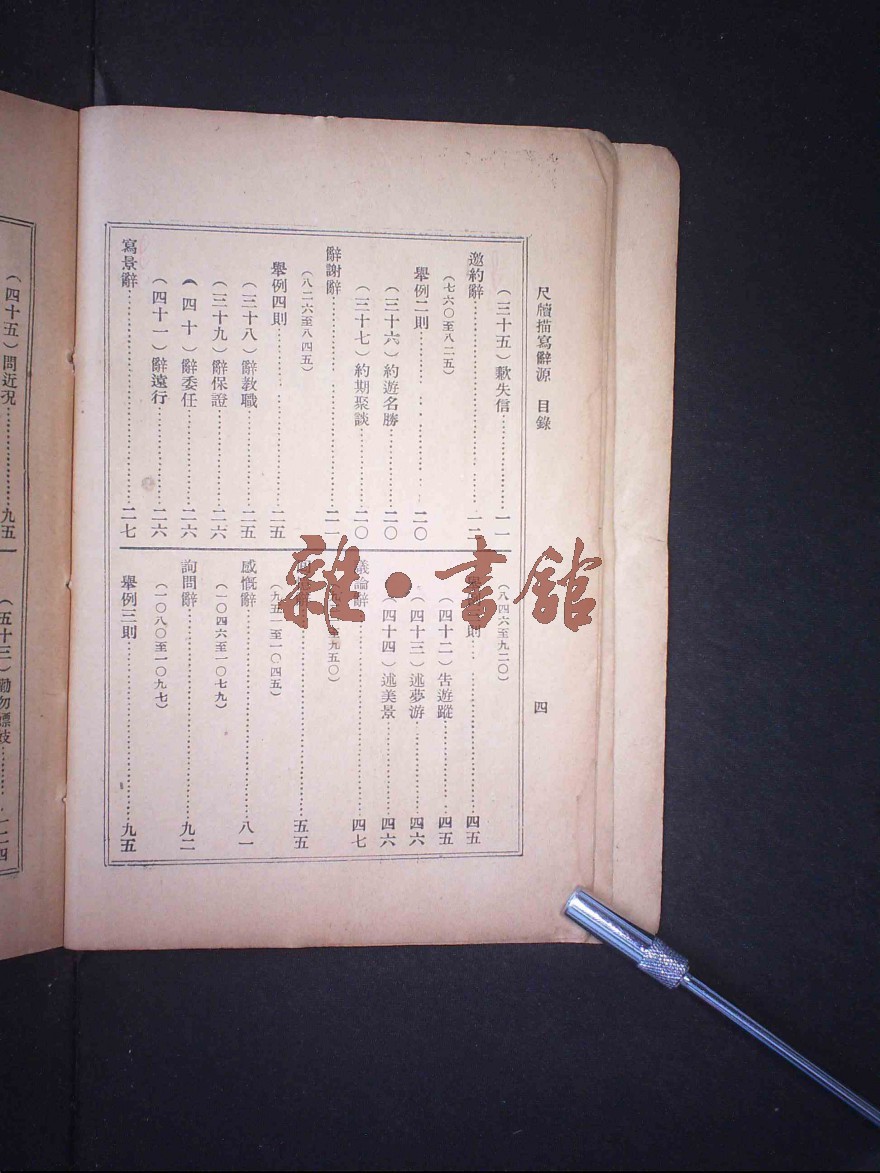 尺牘描寫辭源 目錄
四
(三十五)歉失信…………一一
邀約辭…………一二
(七六〇至八二五)
舉例二則…………二〇
(三十六)約遊名勝…………二〇
(三十七)約期聚談…………二〇
辭謝辭…………二一
(八二六至八四五)
舉例四則…………二五
(三十八)辭教職…………二五
(三十九)辭保證…………二六
(四十)辭委任…………二六
(四十一)辭遠行…………二六
寫景辭…………二七
(八四六至九二〇)
則…………四五
(四十二)告遊蹤…………四五
(四十三)述夢游…………四六
(四十四)述美景…………四六
議論辭…………四七
至九五〇)
…………五五
(九五一至一〇四五)
感慨辭…………八一
(一〇四六至一〇七九)
詢問辭…………九二
(一〇八〇至一〇九七)
舉例三則…………九五
(四十五)問近況…………九五
(五十三)勸勿嫖妓…………一二四
雜·書館